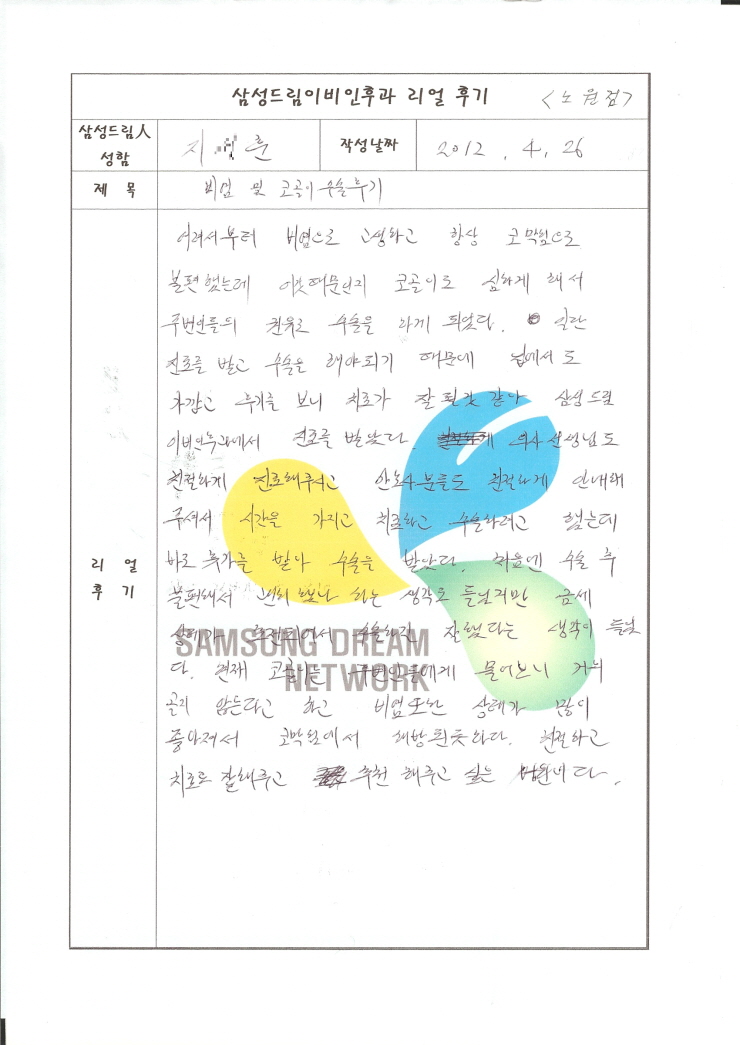 삼성드림이비인후과 리얼 후기 <노원점>
삼성드림人
성함
지 훈
작성날짜
2012. 4. 26
제 목
비염 및 코골이 수술후기
어려서부터 비염으로 고생하고 항상 코막힘으로
불편했는데 이것때문인지 코골이도 심하게 해서
주변인들의 권유로 수술을 하게 되었다. 일단
진료를 받고 수술을 해야되기 때문에 집에서도
가깝고 후기를 보니 치료가 잘 될것 같아 삼성드림
이비인후과에서 진료를 받았다. 의사선생님도
친절하게 진료해주시고 간호사분들도 친절하게 안내해
주셔서 시간을 가지고 치료하고 수술하려고 했는데
바로 휴가를 받아 수술을 받았다. 처음엔 수술 후
불편해서 괜히 했나 하는 생각도 들었지만 금세
상태가 호전되어서 수술하길 잘했다는 생각이 들었
다. 현재 코골이는 주변인들에게 물어보니 거의
골지 않는다고 하고 비염또한 상태가 많이
좋아져서 코막힘에서 해방된듯하다. 친절하고
치료도 잘해주고 추천 해주고 싶은 병원이다.
리 얼
후 기
SAMSUNG DREAM
NETWORK